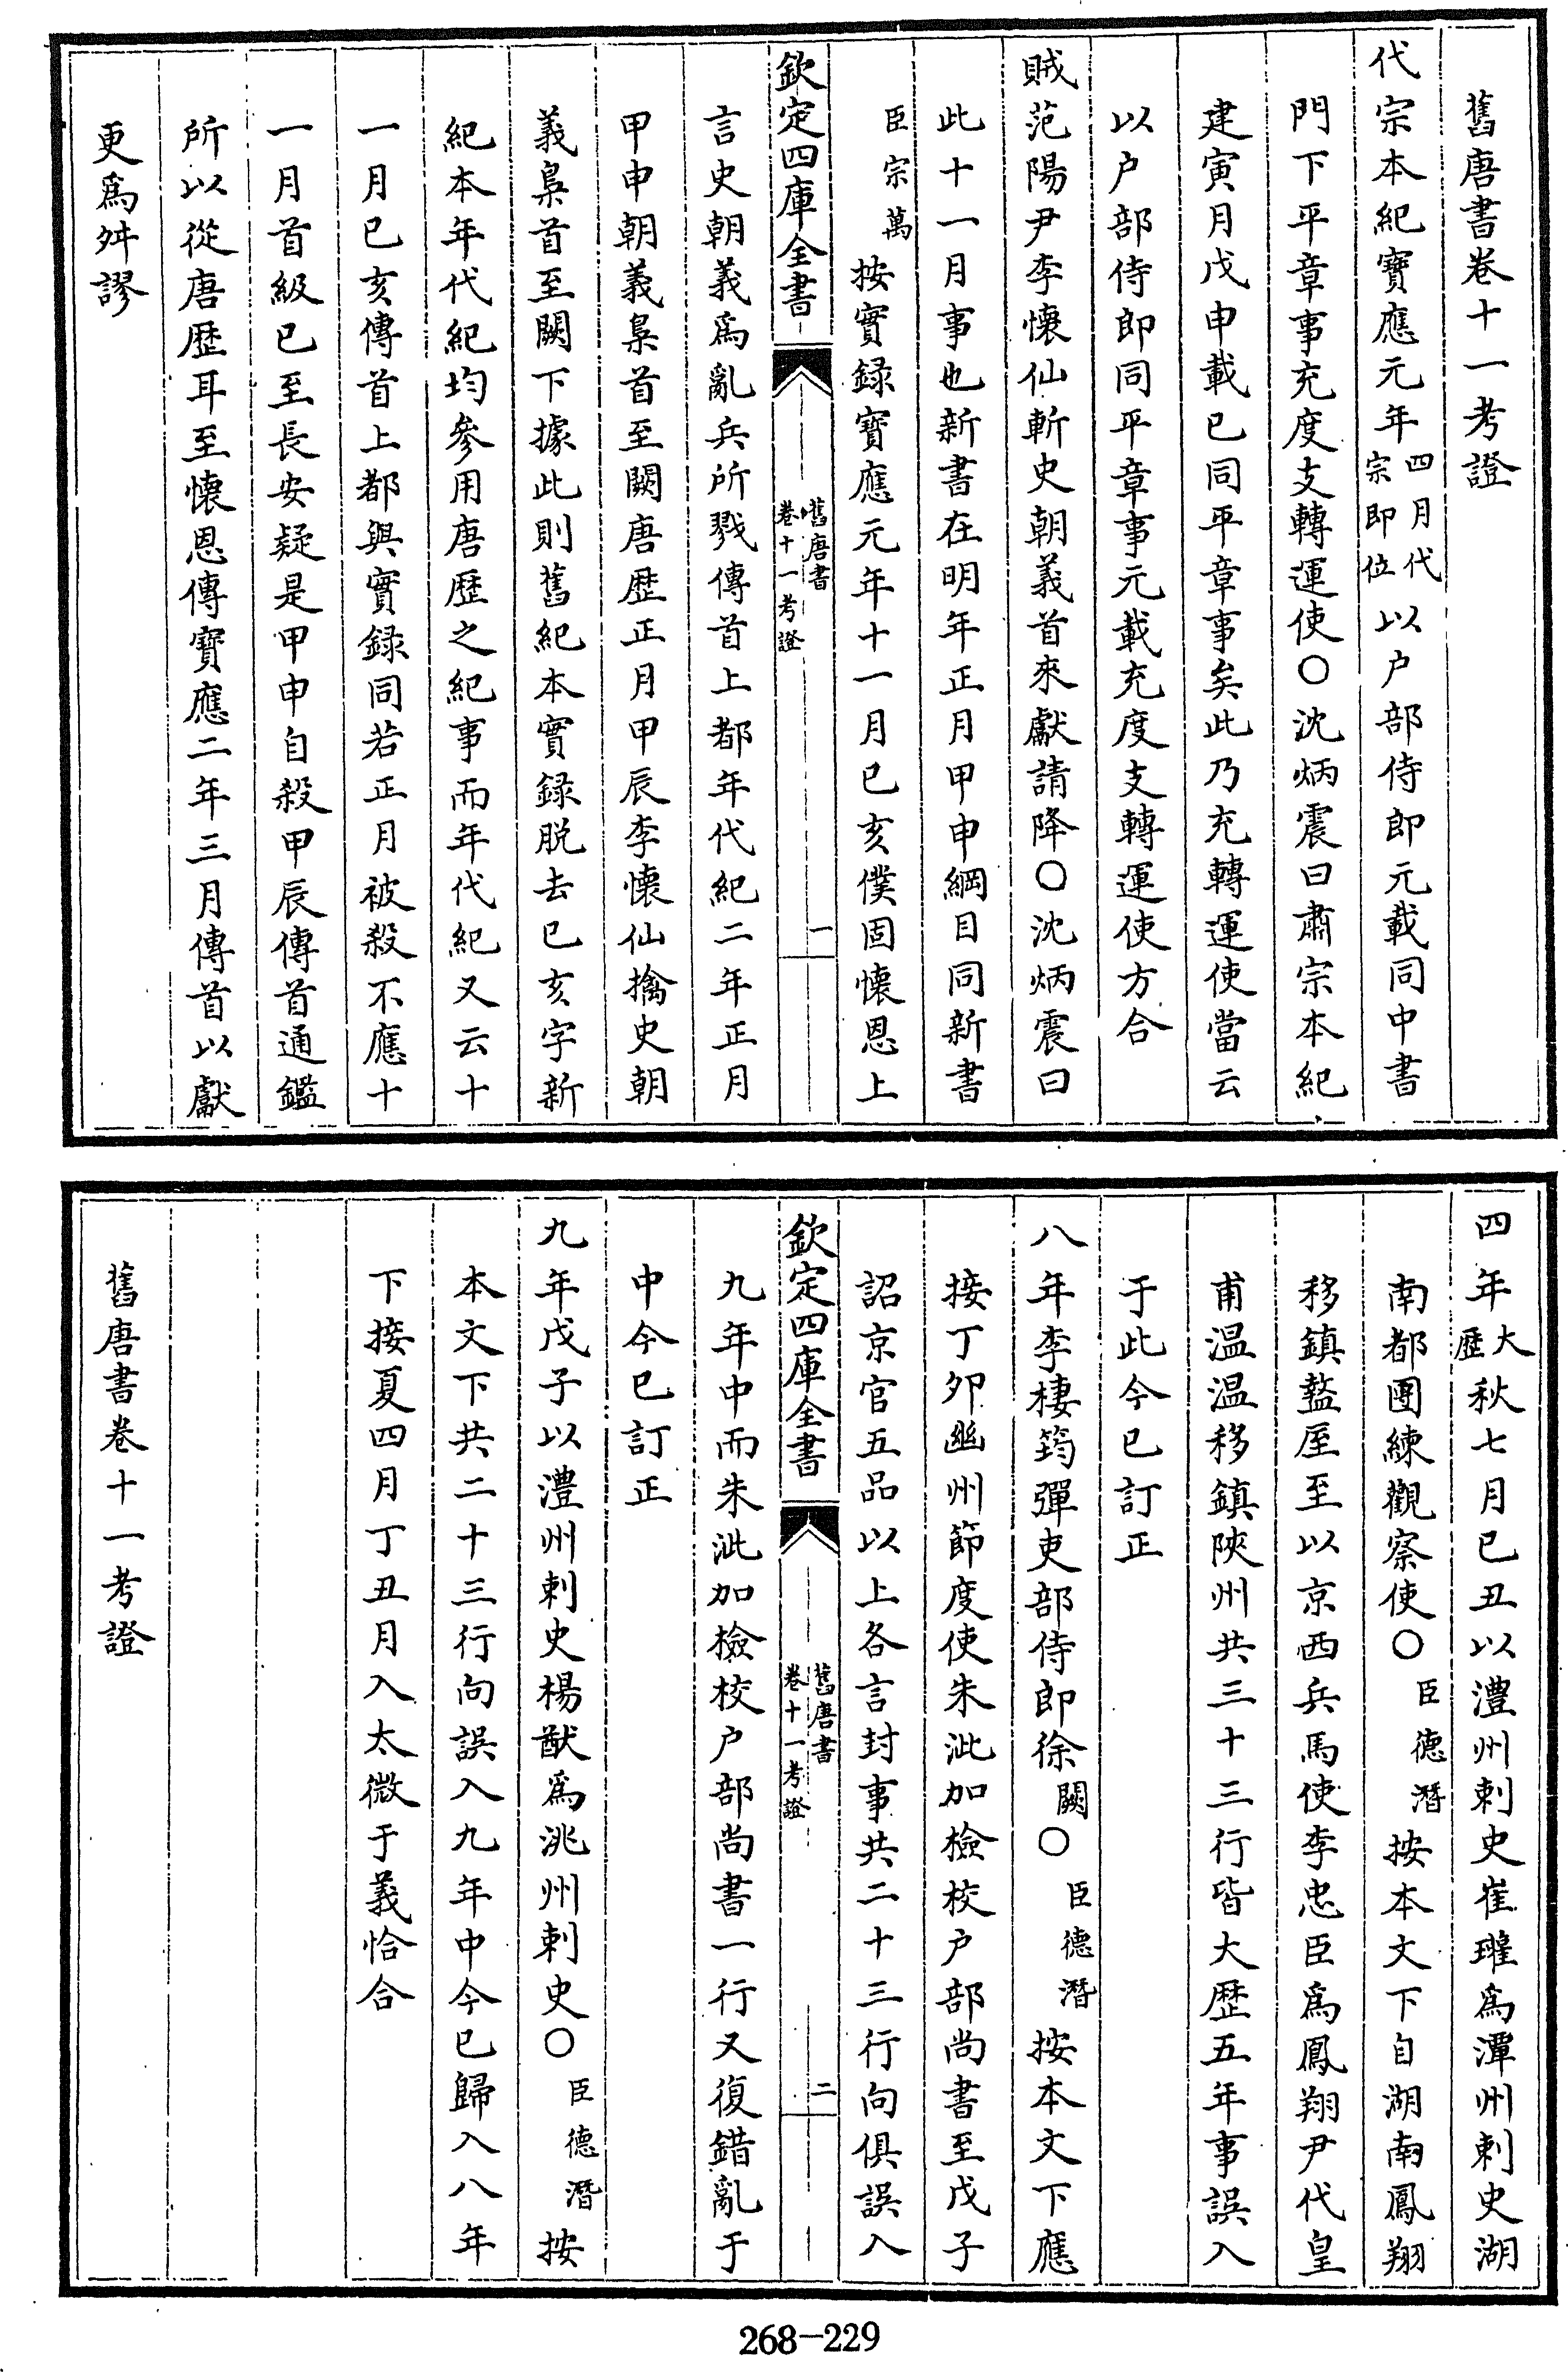 舊唐書卷十一考證
代宗本紀寶應元年四月代宗即位以户部侍郎元載同中書
門下平章事充度支轉運使○沈炳震曰肅宗本紀
建寅月戊申載已同平章事矣此乃充轉運使當云
以户部侍郎同平章事元載充度支轉運使方合
賊范陽尹李懷仙斬史朝義首來獻請降○沈炳震曰
此十一月事也新書在明年正月甲申綱目同新書
臣宗萬按實録寶應元年十一月已亥僕固懷恩上
欽定四庫全書
舊唐書
卷十一考證
一
言史朝義爲亂兵所戮傳首上都年代紀二年正月
甲申朝義梟首至闕唐歴正月甲辰李懷仙擒史朝
義梟首至闕下據此則舊紀本實録脱去已亥字新
紀本年代紀均參用唐歴之紀事而年代紀又云十
一月已亥傳首上都與實録同若正月被殺不應十
一月首級已至長安疑是甲申自殺甲辰傳首通鑑
所以從唐歴耳至懷恩傳寶應二年三月傳首以獻
更爲舛謬
四年大歴秋七月已丑以澧州刺史崔瓘爲潭州刺史湖
南都團練觀察使○臣德潛按本文下自湖南鳳翔
移鎮盩厔至以京西兵馬使李忠臣爲鳳翔尹代皇
甫温温移鎮陜州共三十三行皆大歴五年事誤入
于此今已訂正
八年李棲筠彈吏部侍郎徐闕○臣德潛按本文下應
接丁夘幽州節度使朱泚加檢校户部尚書至戊子
詔京官五品以上各言封事共二十三行向俱誤入
欽定四庫全書
舊唐書
卷十一考證
二
九年中而朱泚加檢校户部尚書一行又復錯亂于
中今已訂正
九年戊子以澧州刺史楊猷爲洮州刺史○臣德潛按
本文下共二十三行向誤入九年中今已歸入八年
下接夏四月丁丑月入太微于義恰合
舊唐書卷十一考證
268-229